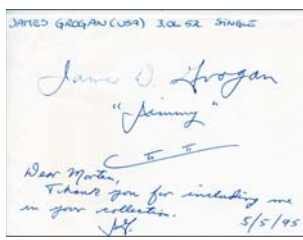 JAMES GROGAN (USA) 3.OL 52 SINGLE
James D. Grogan
"Jimmy"
Dear Morten,
Thank you for including me
in your collection.
JG.
5/5/95